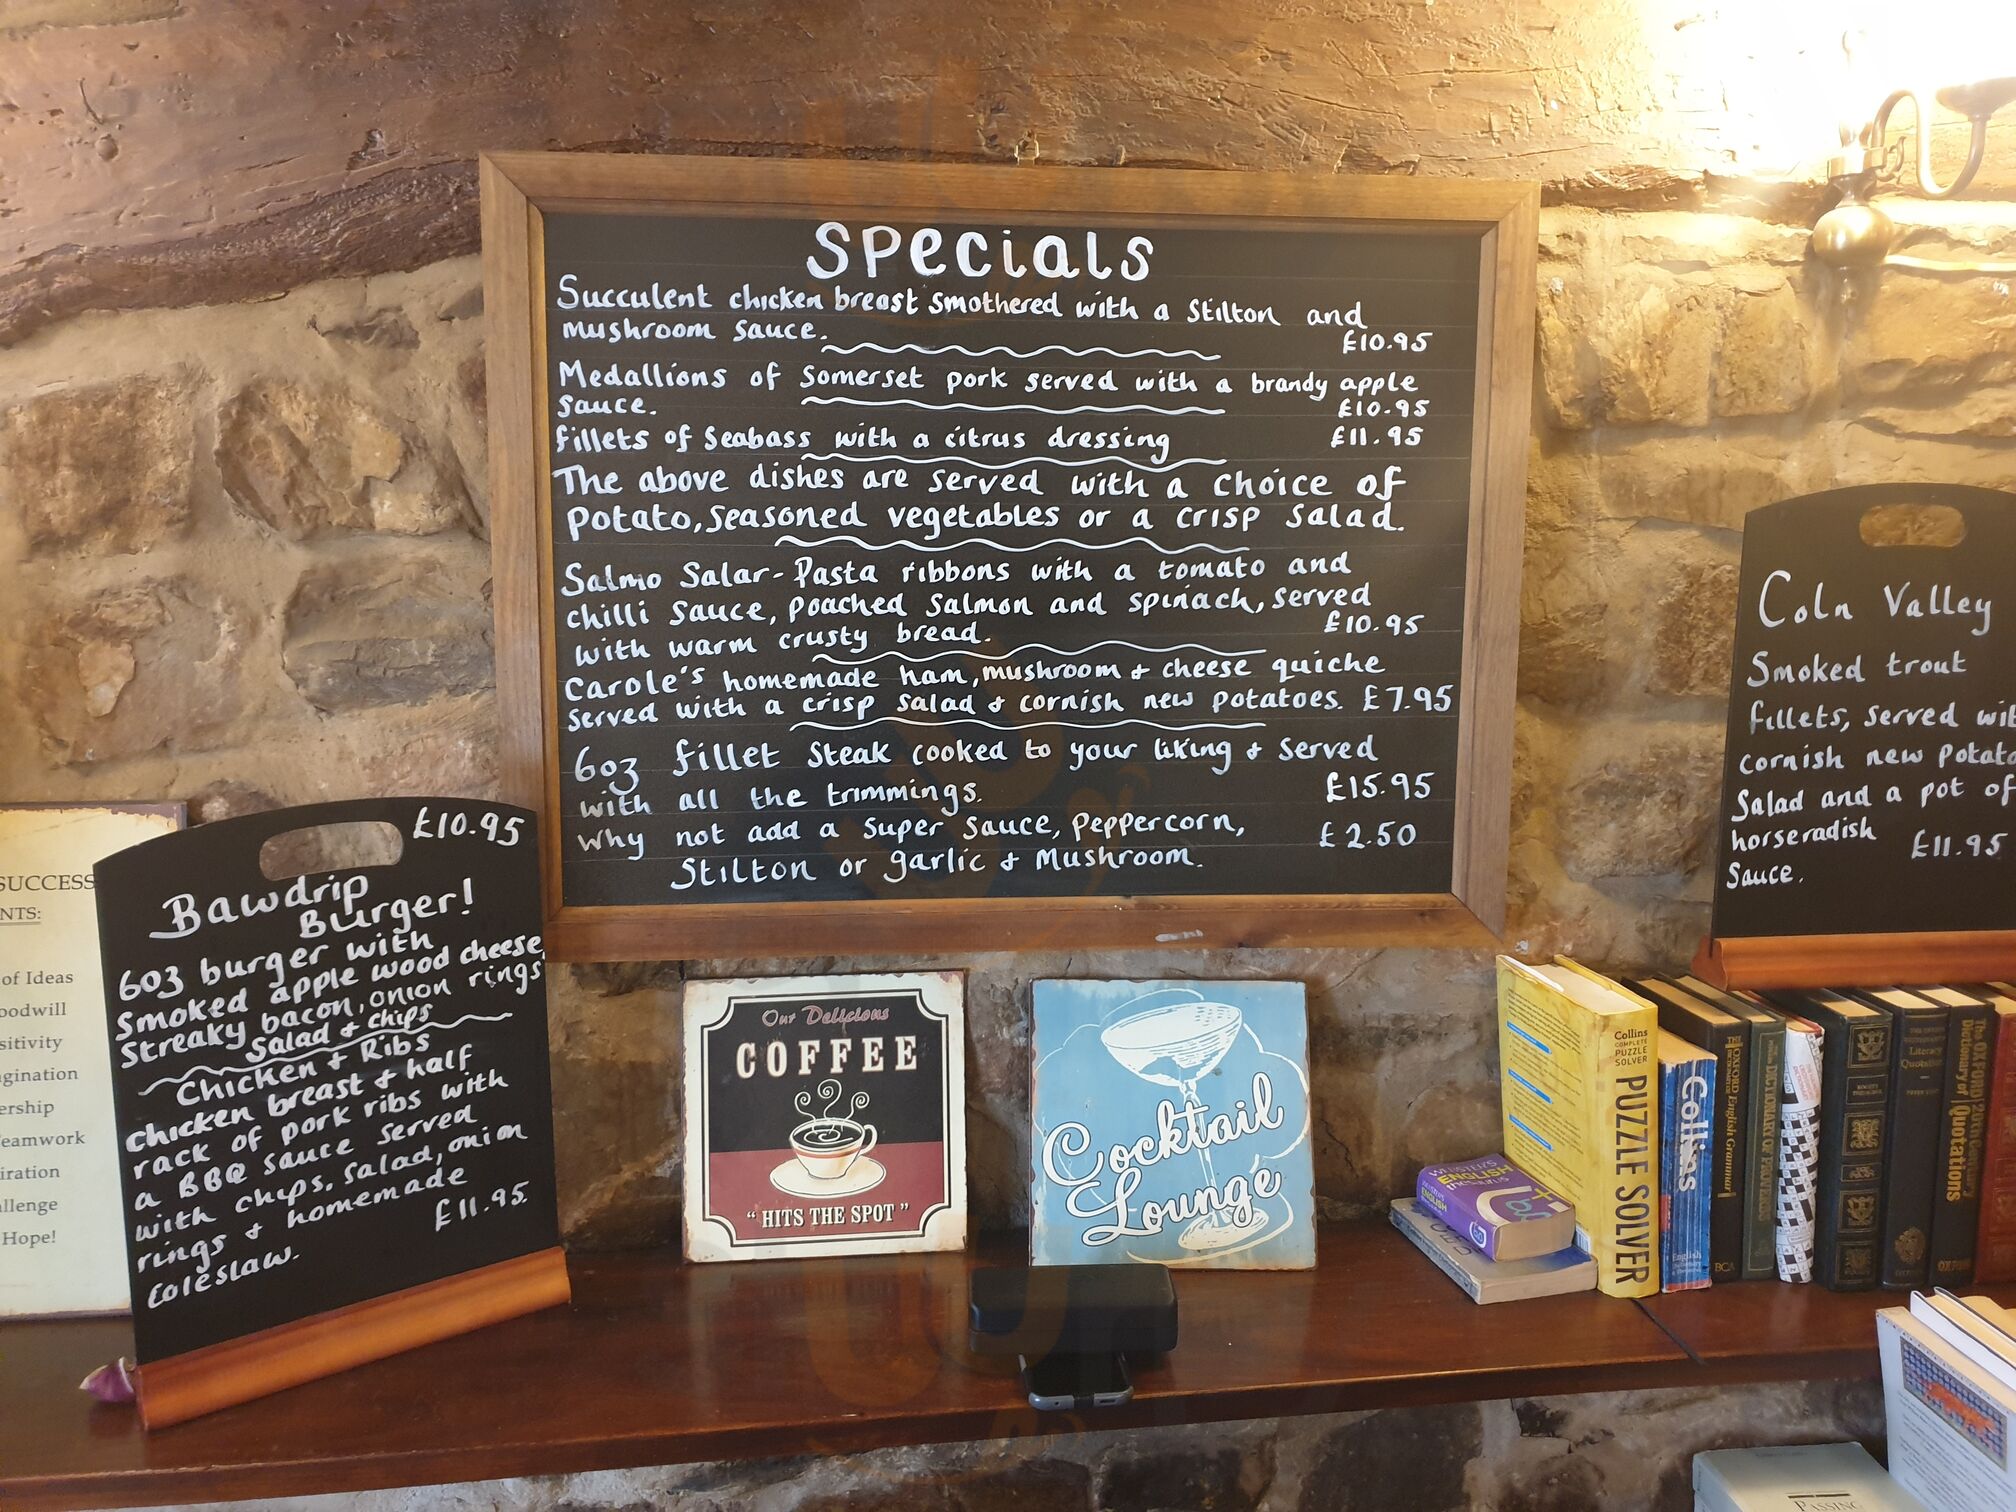 Specials
Succulent chicken breast smothered with a Stilton and
mushroom sauce. £10.95
Medallions of Somerset pork served with a brandy apple
sauce. £10.95
fillets of Seabass with a citrus dressing £11.95
The above dishes are served with a choice of
potato, seasoned vegetables or a crisp salad.
Salmo Salar - Pasta ribbons with a tomato and
chilli sauce, poached salmon and spinach, served
with warm crusty bread. £10.95
Carole's homemade ham, mushroom & cheese quiche
served with a crisp salad & cornish new potatoes. £7.95
6oz fillet steak cooked to your liking & served
with all the trimmings. £15.95
Why not add a super sauce, peppercorn, £2.50
Stilton or garlic & Mushroom.
£10.95
Bawdrip
Burger!
6oz burger with
smoked apple wood cheese,
streaky bacon, onion rings
salad & chips
Chicken & Ribs
chicken breast & half
rack of pork ribs with
a BBQ sauce served
with chips, salad, onion
rings & homemade
coleslaw. £11.95.
Coln Valley
Smoked trout
fillets, served wit
cornish new potato
Salad and a pot of
horseradish
Sauce. £11.95
SUCCESS
NTS:
of Ideas
oodwill
sitivity
agination
ership
Teamwork
iration
allenge
Hope!
Our Delicious
COFFEE
"HITS THE SPOT"
Cocktail
Lounge
WEBSTER'S
ENGLISH
THESAURUS
Collins
COMPLETE
PUZZLE
SOLVER
PUZZLE SOLVER
Collins
English
THE OXFORD English Grammar
BCA
DICTIONARY OF PROVERBS
Literary
Quotations
The OXFORD
Dictionary of Quotations
PASSING